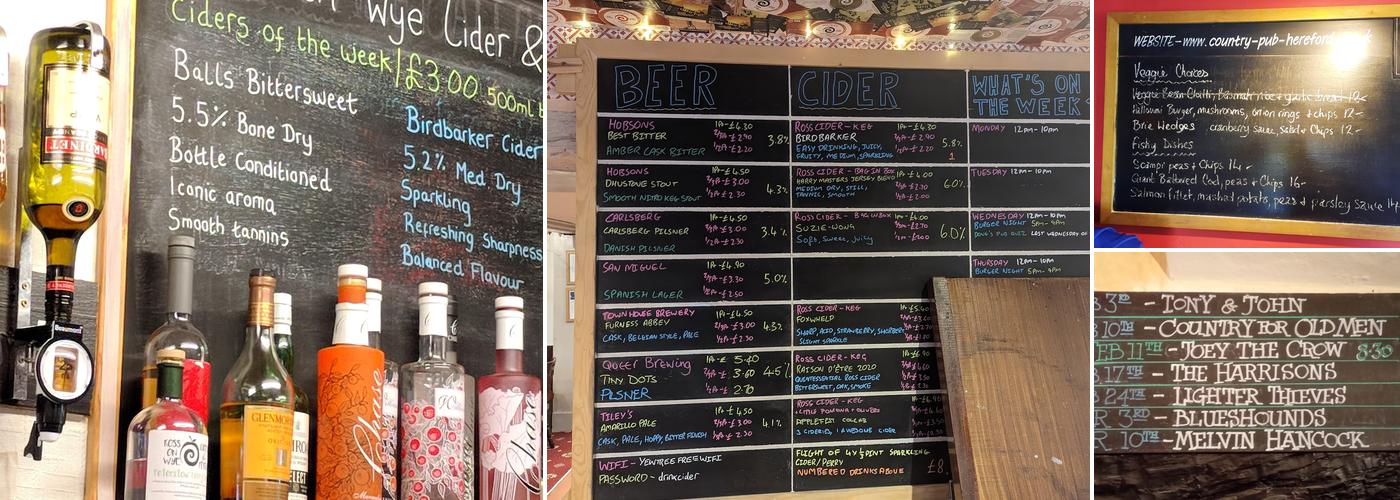 Wye Cider &
Ciders of the week / £3.00 500ml b
Balls Bittersweet
5.5% Bone Dry
Bottle Conditioned
Iconic aroma
Smooth tannins
Birdbarker Cider
5.2% Med Dry
Sparkling
Refreshing sharpness
Balanced Flavour
Beaumont
ROSS ON WYE
GLENMOR
Chase
Chase
BEER
HOBSONS 1PT-£4.30
BEST BITTER 2/3PT-£2.90 3.8%
AMBER CASK BITTER 1/2PT-£2.20
HOBSONS 1PT-£4.50
DHUSTONE STOUT 4.3%
SMOOTH NITRO KEG STOUT £2.30
CARLSBERG 1PT-£4.50
CARLSBERG PILSNER 2/3PT-£3.00 3.4%
DANISH PILSNER 1/2PT-£2.30
SAN MIGUEL 1PT-£4.90
2/3PT-£3.30 5.0%
SPANISH LAGER 1/2PT-£2.50
TOWNHOUSE BREWERY 1PT-£4.50
FURNESS ABBEY 2/3PT-£3.00 4.3%
CASK, BELGIAN STYLE, PALE 1/2PT-£2.30
Queer Brewing 1PT-£ 5.40
TINY DOTS 2/3PT-£ 3.60 4.5%
PILSNER 1/2PT-£ 2.70
TILEY'S 1PT-£4.50
AMARILLO PALE 2/3PT-£3.00 4.1%
CASK, PALE, HOPPY, BITTER FINISH 1/2PT-£2.30
WIFI - YEWTREE FREE WIFI
PASSWORD - drinkcider
CIDER
ROSS CIDER - KEG 1PT-£4.30
BIRDBARKER 2/3PT-£2.90 5.8%
EASY DRINKING, JUICY, 1/2PT-£2.20
FRUITY, MEDIUM, SPARKLING 1
ROSS CIDER - BAG IN BOX 1PT-£4.00
HARRY MASTERS JERSEY BLEND 6.0%
MEDIUM DRY, STILL,
TANNIC, SMOOTH £2.00
ROSS CIDER - BAG IN BOX 1PT-£4.00
SUZIE-WONG 6.0%
Soft, Sweet, Juicy £2.00
ROSS CIDER - KEG
FOXWHELP
SHARP, ACID, STRAWBERRY, SHERBERT
SLIGHT SPARKLE
ROSS CIDER - KEG
RAISON D'ÊTRE 2020
QUINTESSENTIAL ROSS CIDER
BITTERSWEET, OAK, SMOKE
ROSS CIDER - KEG
+ LITTLE POMONA + OLIVERS
APPLETEFY COLLAB
3 CIDERIES, 1 AWESOME CIDER
FLIGHT OF 4 x 1/2 PINT SPARKLING
CIDER/PERRY
NUMBERED DRINKS ABOVE £8.
WHAT'S ON
THE WEEK
MONDAY 12pm-10pm
TUESDAY 12pm-10pm
WEDNESDAY 12pm-10pm
BURGER NIGHT 5pm-9pm
DOUG'S PUB QUIZ LAST WEDNESDAY OF
THURSDAY 12pm-10pm
BURGER NIGHT 5pm-9pm
WEBSITE-www.country-pub-hereford
Veggie Choices
Veggie Bean Chilli, Basmati rice & garlic bread 12-
Halloumi Burger, mushrooms, onion rings & chips 12-
Brie Wedges cranberry sauce, salad & Chips 12-
Fishy Dishes
Scampi peas & Chips 14-
Giant Battered Cod, peas & Chips 16-
Salmon fillet, mashed potato, peas & parsley Sauce 14
B 3RD - TONY & JOHN
B 10TH - COUNTRY FOR OLD MEN
FEB 11TH - JOEY THE CROW 8:30
17TH - THE HARRISONS
B 24TH - LIGHTER THIEVES
R 3RD - BLUESHOUNDS
R 10TH - MELVIN HANCOCK